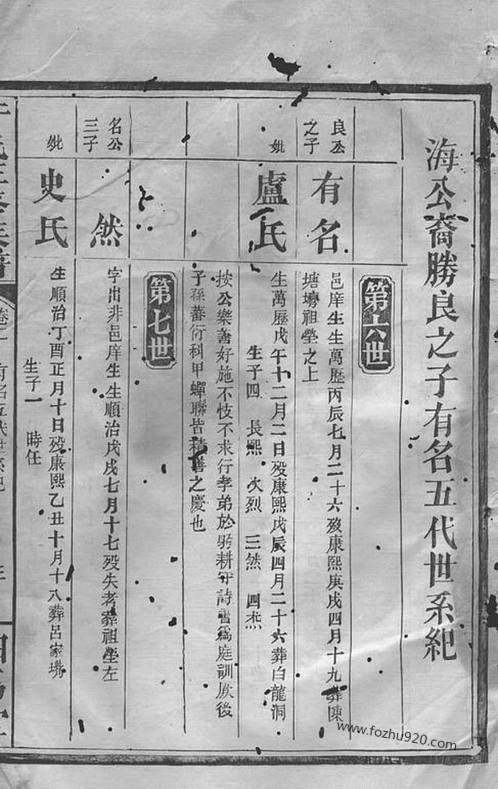 海公裔勝良之子有名五代世系紀
第六世
良公之子
有名
邑庠生生萬歷丙辰七月二十六歿康熙庚戌四月十九葬陳
塘塆祖塋之上
妣
盧氏
生萬歷戊午十二月二日歿康熙戊辰四月二十六葬白龍洞
生子四 長熙 次烈 三然 四杰
按公樂善好施不忮不求行孝弟於躬耕守詩書爲庭訓厥後
子孫蕃衍科甲蟬聯皆積善之慶也
第七世
名公三子
然
字出非邑庠生生順治戊戌七月十七歿失考葬祖塋左
妣
史氏
生順治丁酉正月十日歿康熙乙丑十月十八葬呂家塆
生子一 時任
卷
有名五代世系紀
www.fozhu920.com